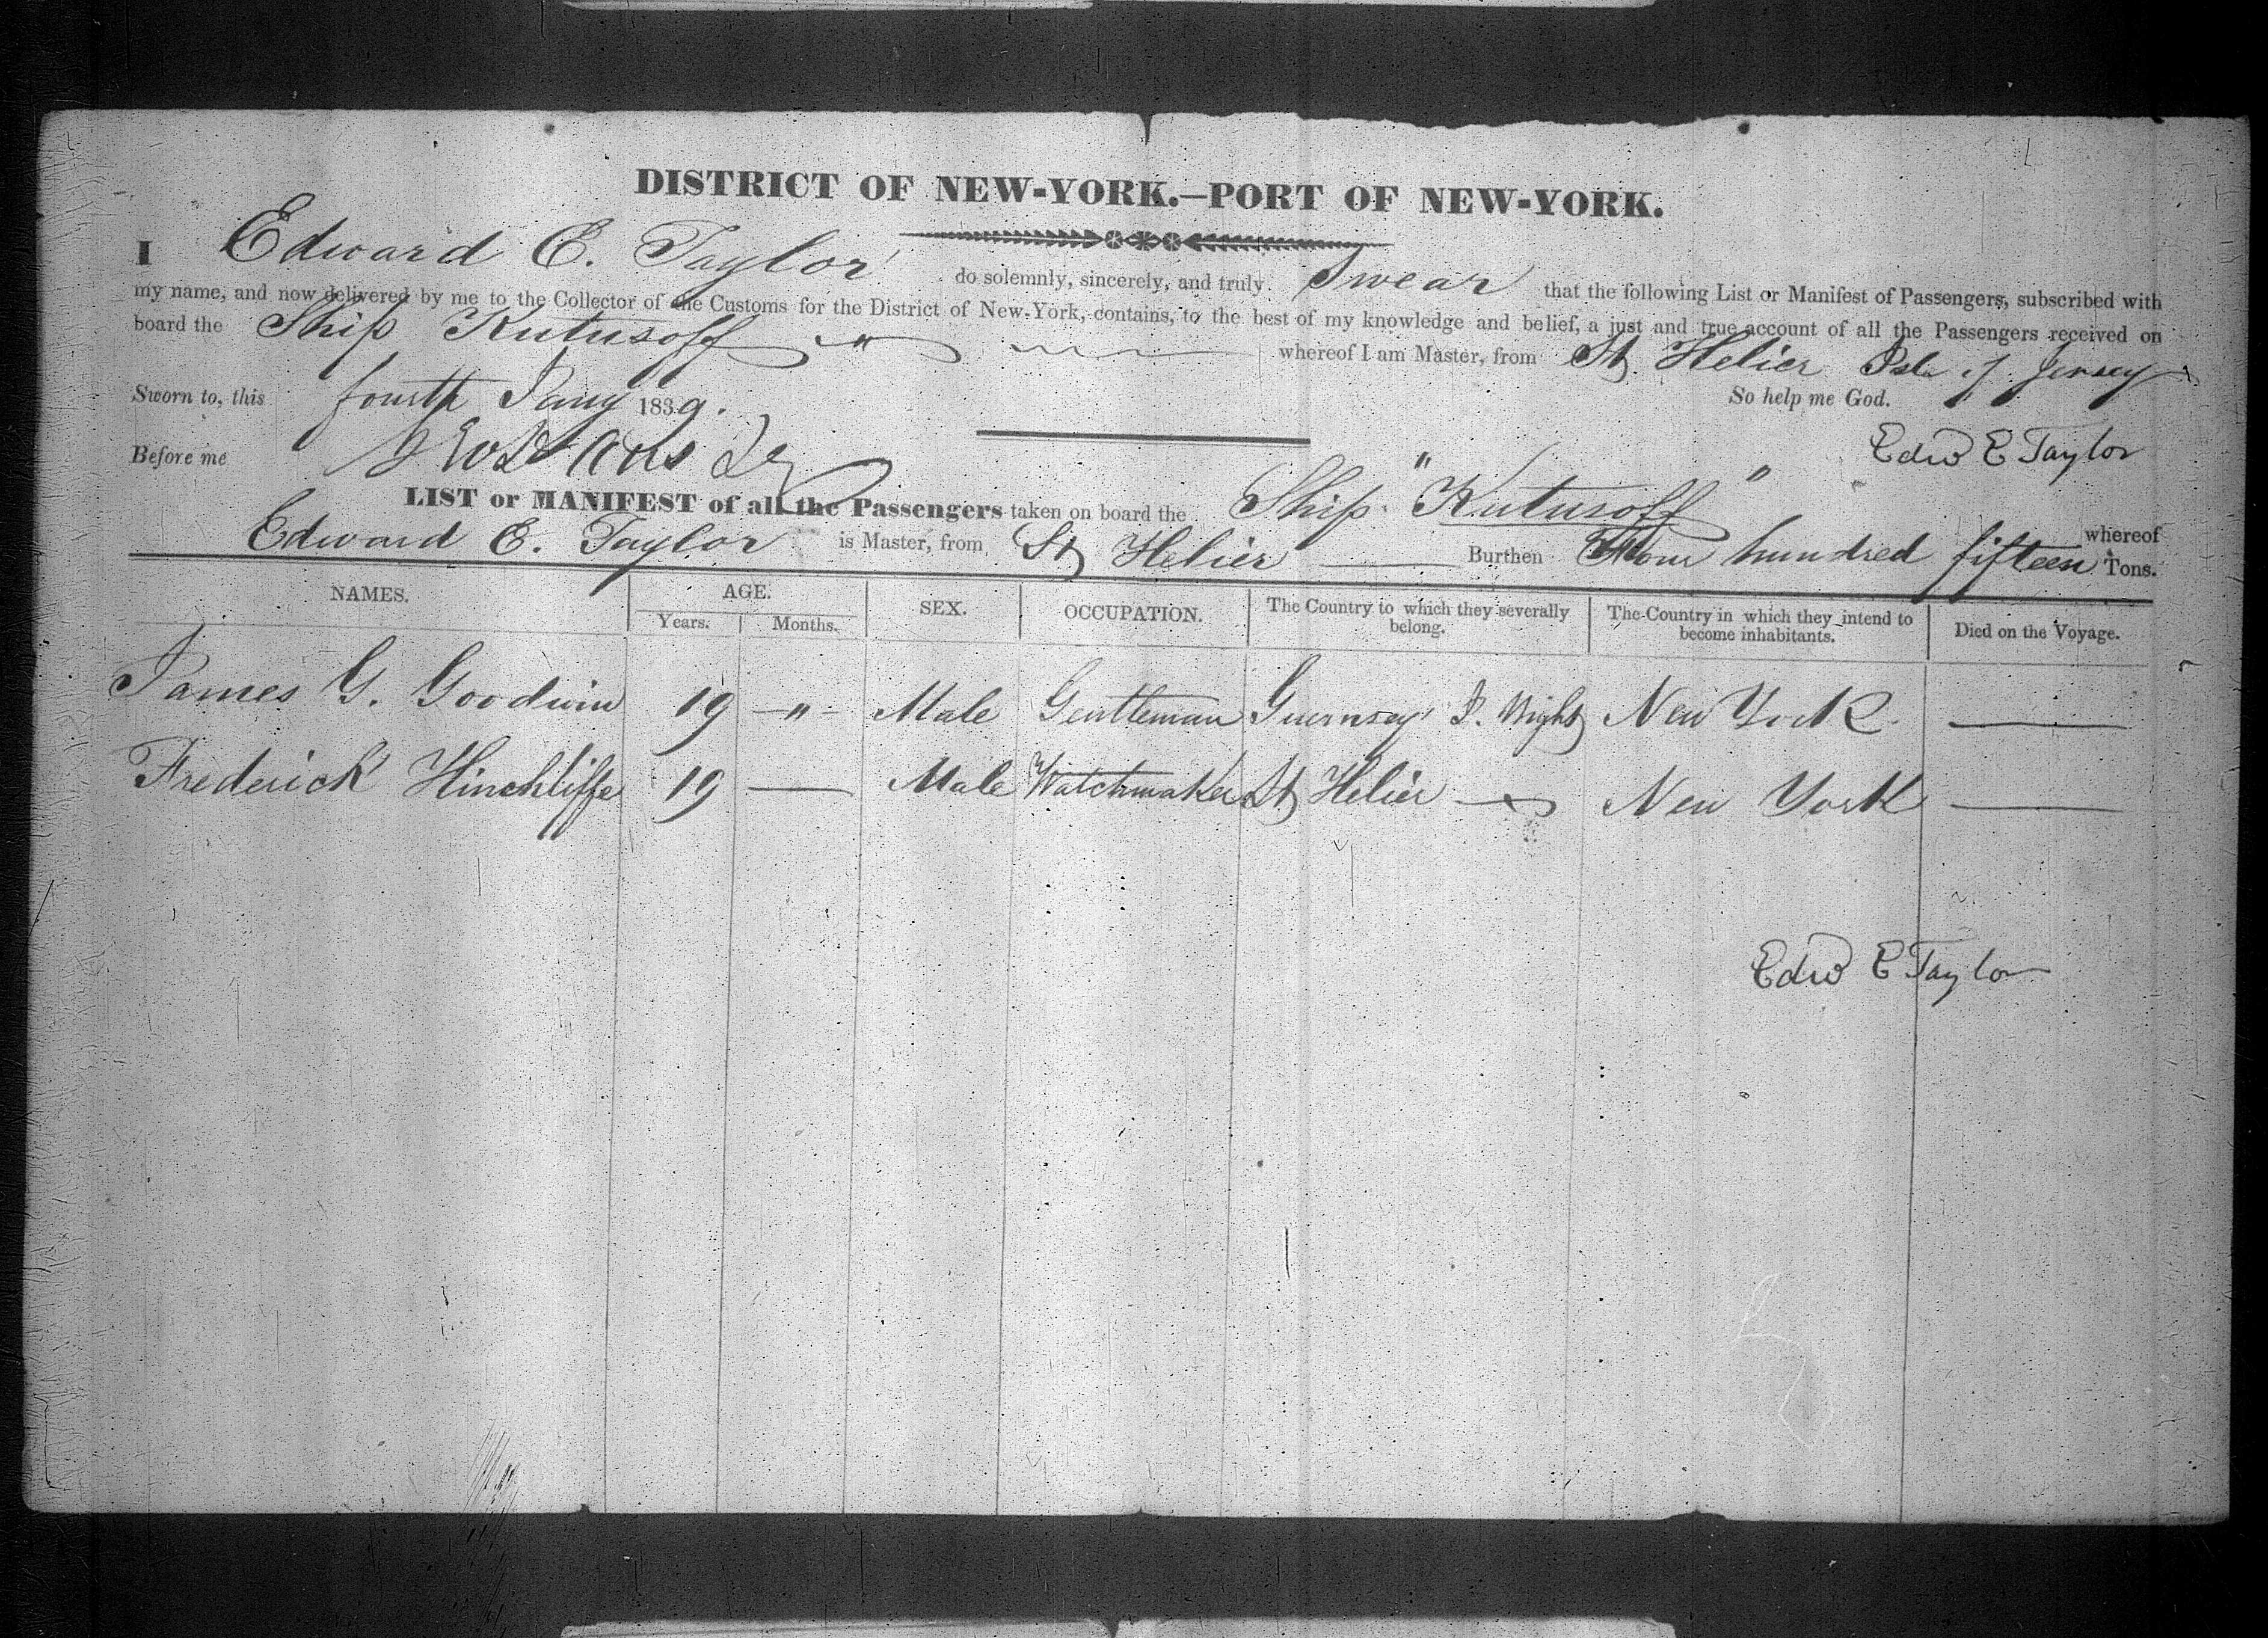 DISTRICT OF NEW-YORK.—PORT OF NEW-YORK.
I Edward E. Taylor do solemnly, sincerely, and truly Swear that the following List or Manifest of Passengers, subscribed with
my name, and now delivered by me to the Collector of the Customs for the District of New-York, contains, to the best of my knowledge and belief, a just and true account of all the Passengers received on
board the Ship Kutusoff " whereof I am Master, from St Helier Isle of Jersey
Sworn to, this fourth Jany 1839. So help me God.
Before me Edwd E Taylor
LIST or MANIFEST of all the Passengers taken on board the Ship "Kutusoff" whereof
Edward E. Taylor is Master, from St Helier — Burthen Four hundred fifteen Tons.
NAMES. AGE. SEX. OCCUPATION. The Country to which they severally belong. The Country in which they intend to become inhabitants. Died on the Voyage.
Years. Months.
James G. Goodwin 19 —"— Male Gentleman Guernsey I. Wight New York —
Frederick Hinchliffe 19 — Male Watchmaker St Helier — New York —
Edwd E Taylor